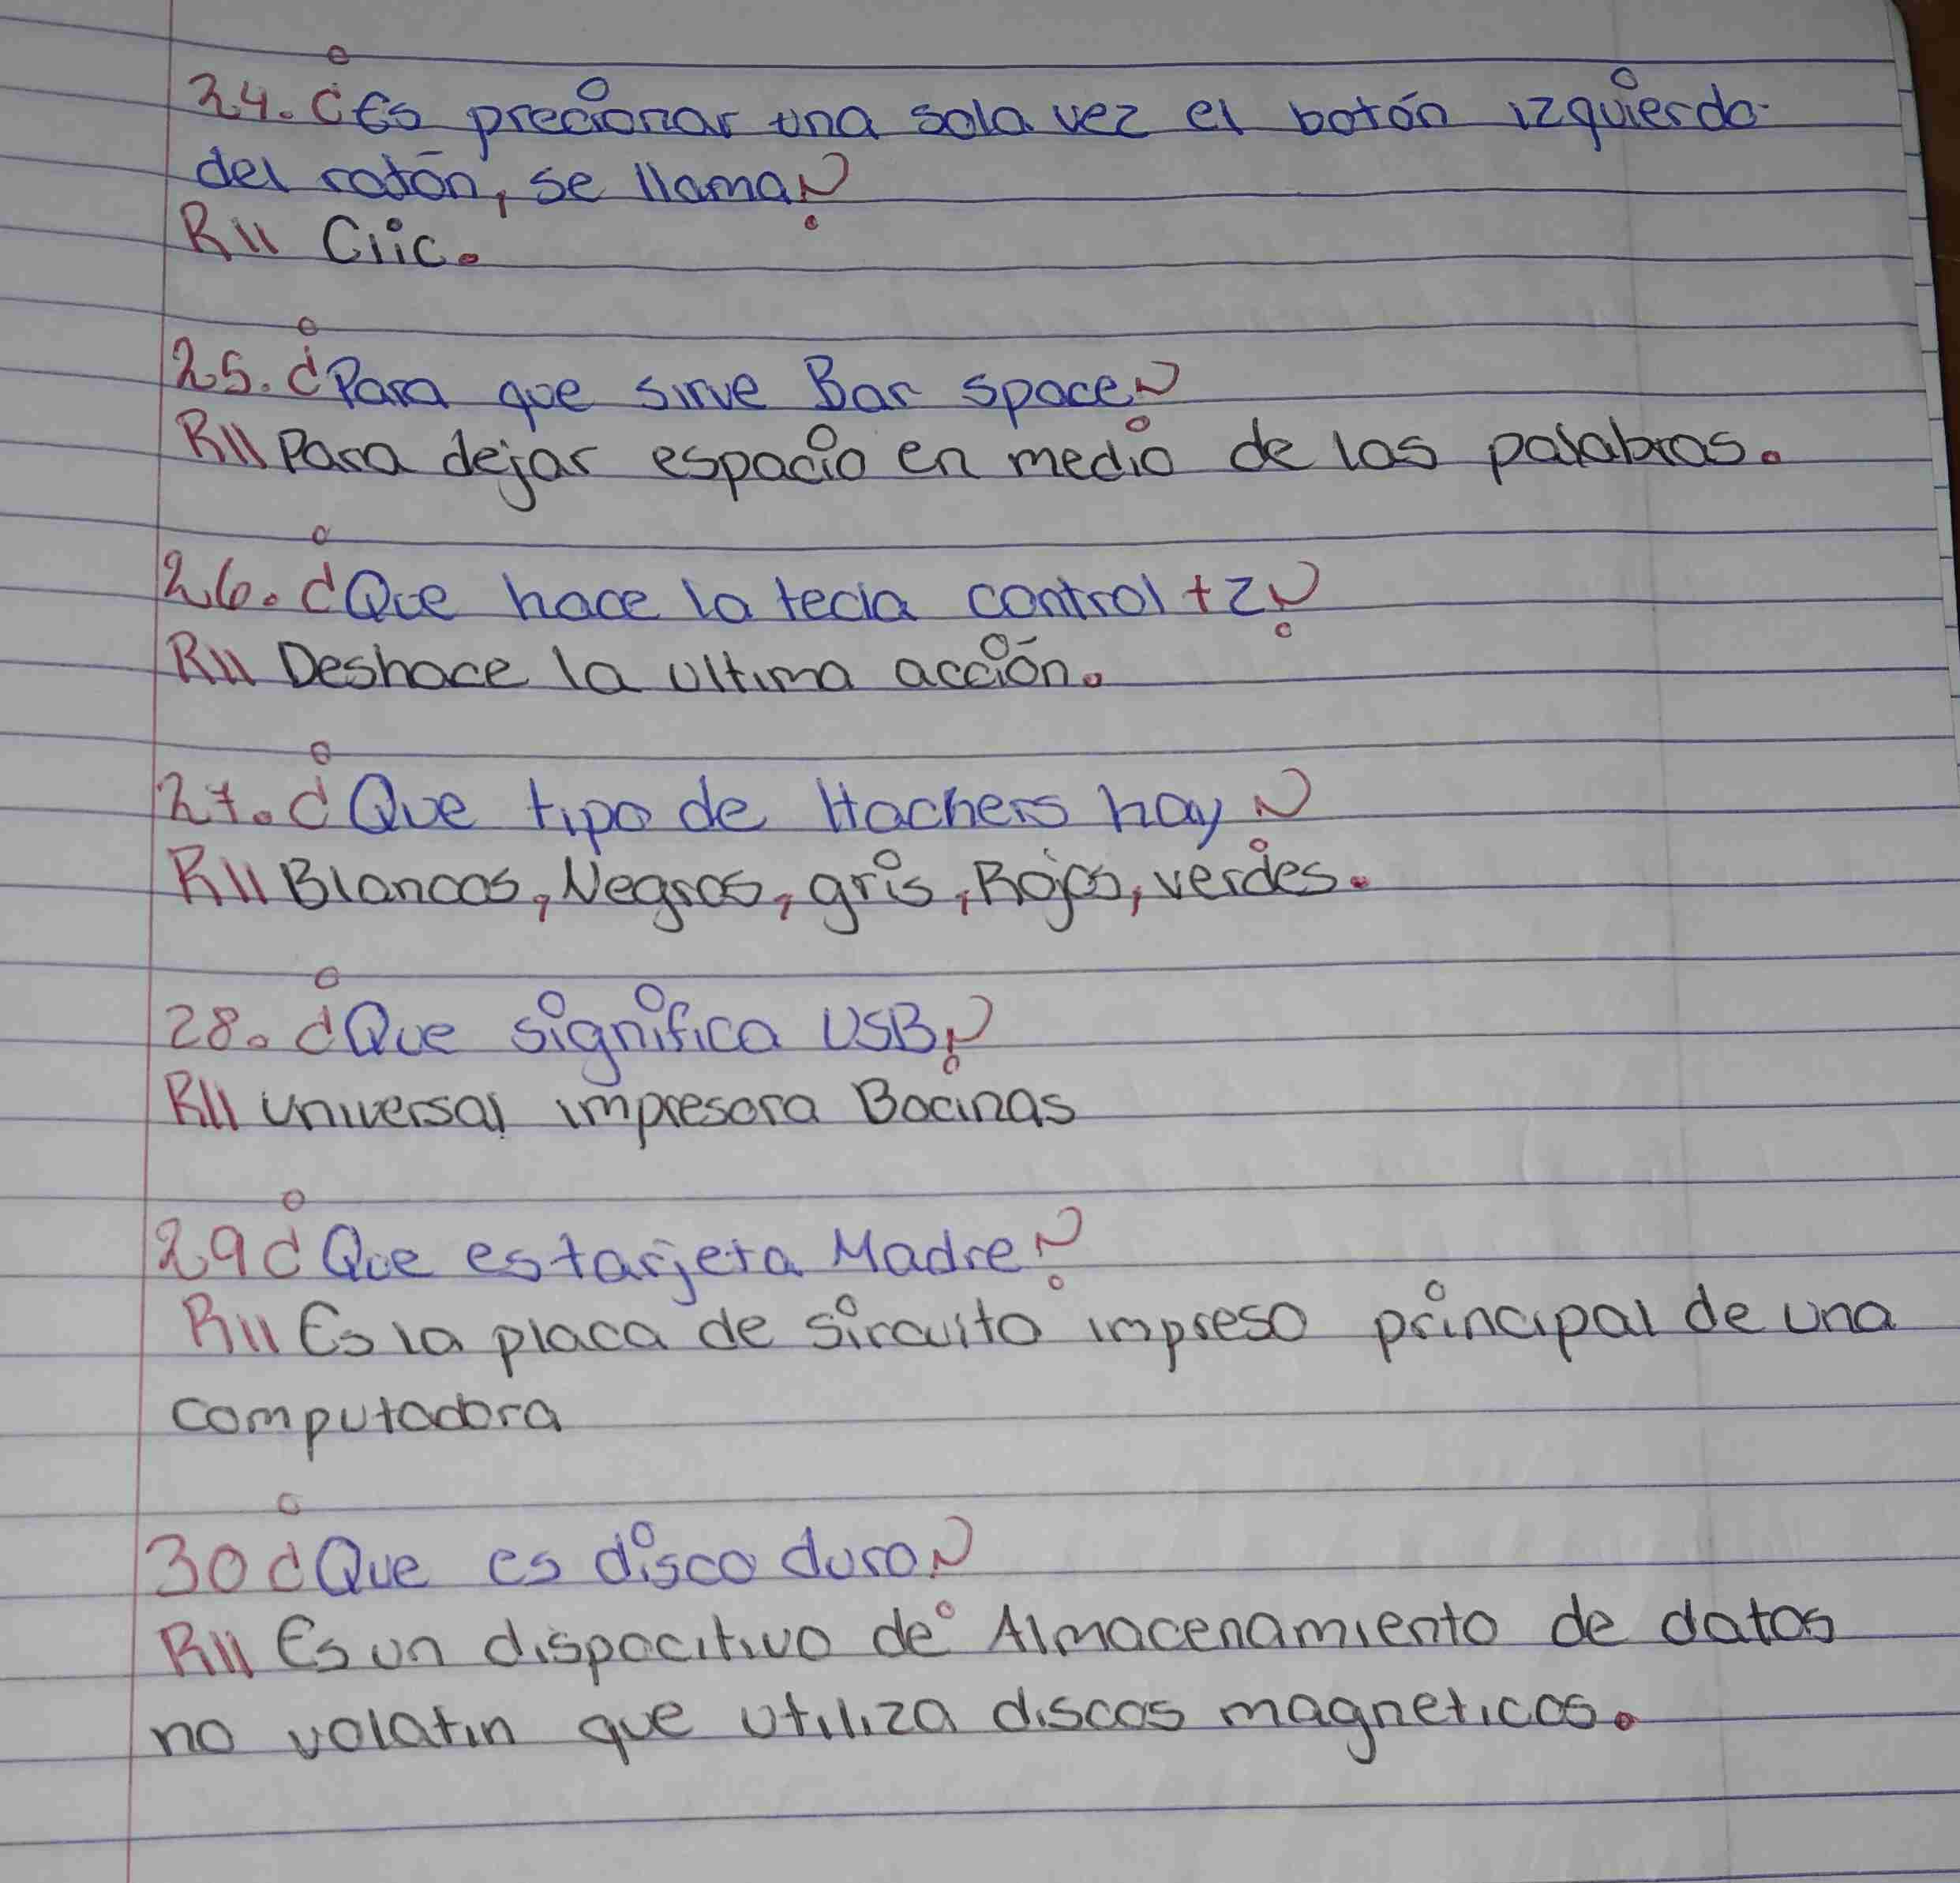 24. ¿Es precionar una sola vez el botón izquierdo
del ratón, se llama?
R// Clic.
25. ¿Para que sirve Bar space?
R// Para dejar espacio en medio de las palabras.
26. ¿Que hace la tecla control +Z?
R// Deshace la ultima acción.
27. ¿Que tipo de Hachers hay?
R// Blancos, Negros, gris, Rojos, verdes.
28. ¿Que significa USB?
R// universal impresora Bocinas
29 ¿Que es tarjeta Madre?
R// Es la placa de sircuito impreso principal de una
computadora
30 ¿Que es disco duro?
R// Es un dispocitivo de Almacenamiento de datos
no volatin que utiliza discos magneticos.